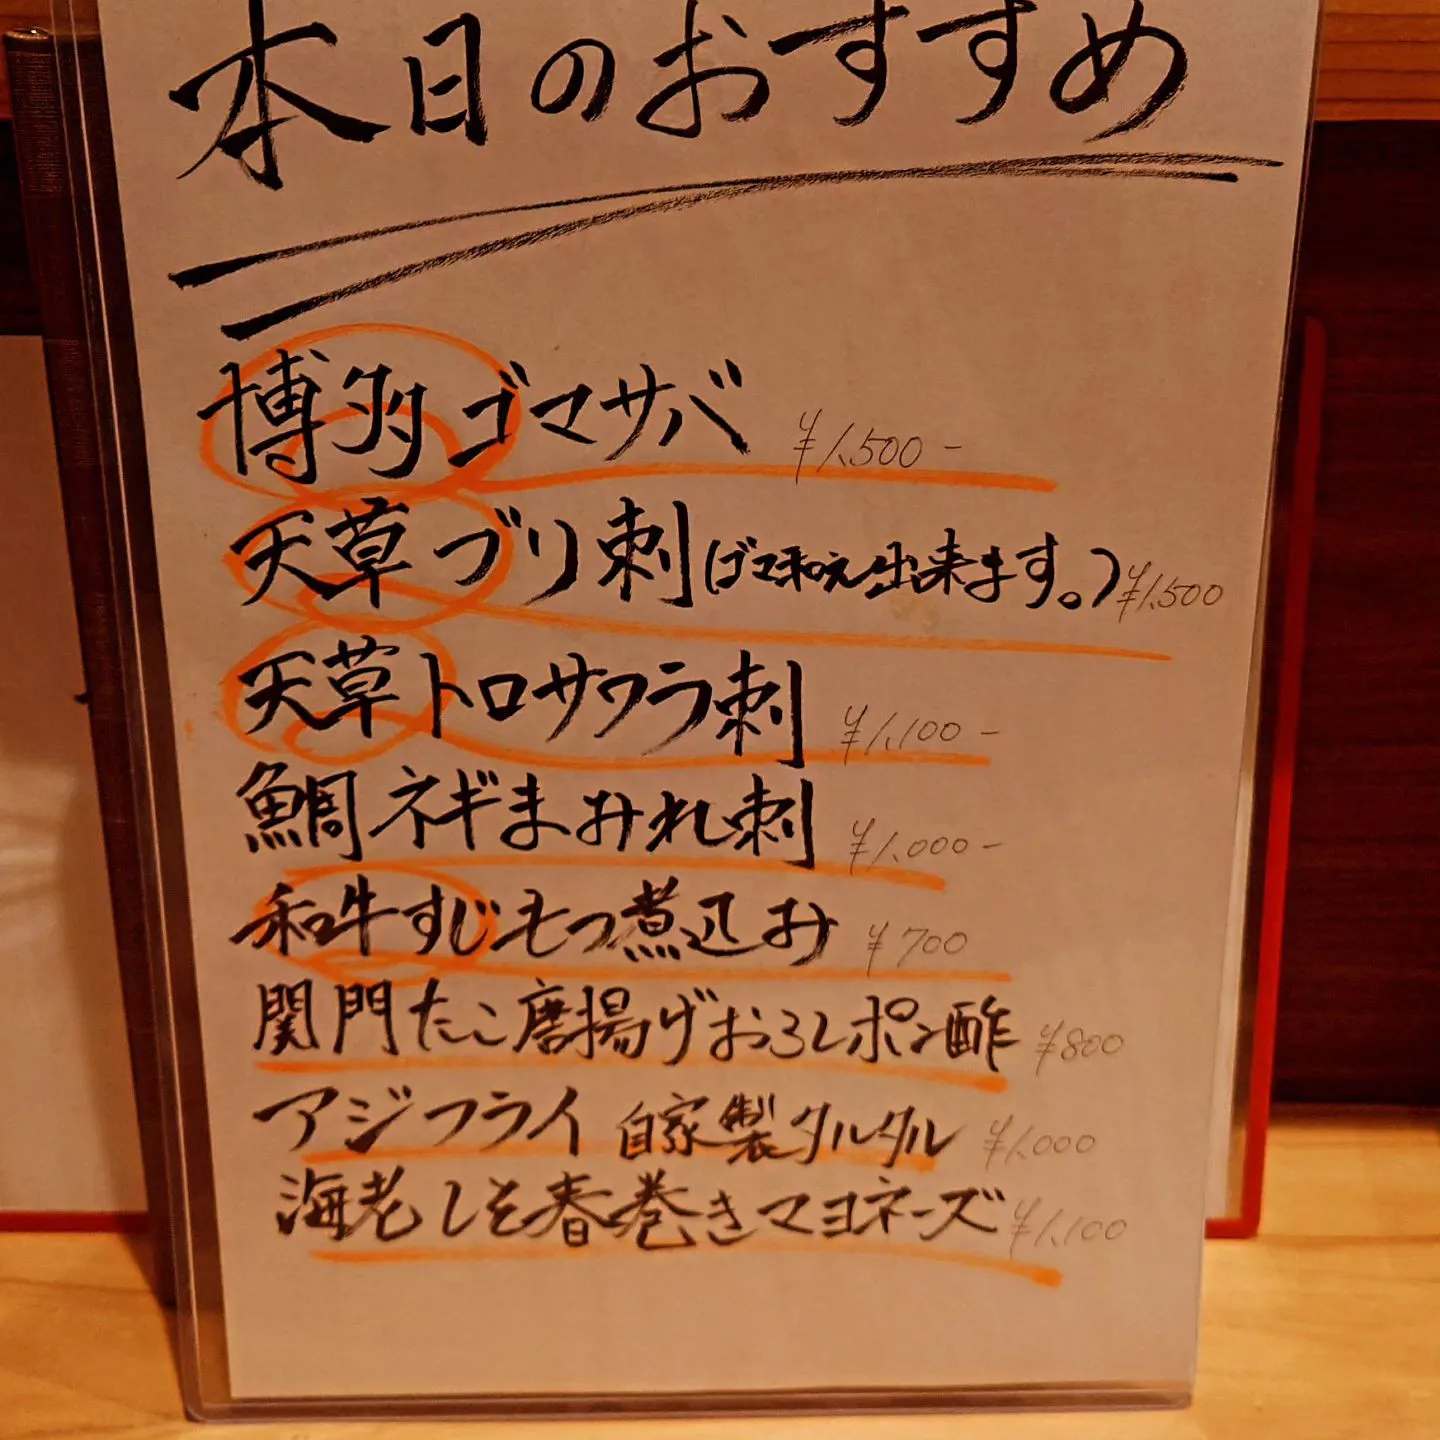 本日のおすすめ
博多ゴマサバ ¥1,500-
天草ブリ刺(ゴマ和え出来ます。) ¥1,500
天草トロサワラ刺 ¥1,100-
鯛ネギまみれ刺 ¥1,000-
和牛すじもつ煮込み ¥700
関門たこ唐揚げおろしポン酢 ¥800
アジフライ 自家製タルタル ¥1,000
海老しそ春巻きマヨネーズ ¥1,100